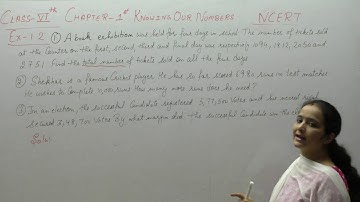 CLASS-VIth CHAPTER-1st KNOWING OUR NUMBERS NCERT
Ex-1.2 ① A book exhibition was held for four days in school. The number of tickets sold
at the Counter on the first, second, third and final day was 1094, 1812, 2050 and
2751. Find the total number of tickets sold on all the four days.
② Shekhar is a famous Cricket player. He has so far scored 6980 runs in test matches.
He wishes to Complete 10,000 runs. How many more runs does he need?
③ In an election, the successful Candidate registered 5,77,500 Votes and his
secured 3,48,700 Votes. By what margin did the successful Candidate win the
Sol: